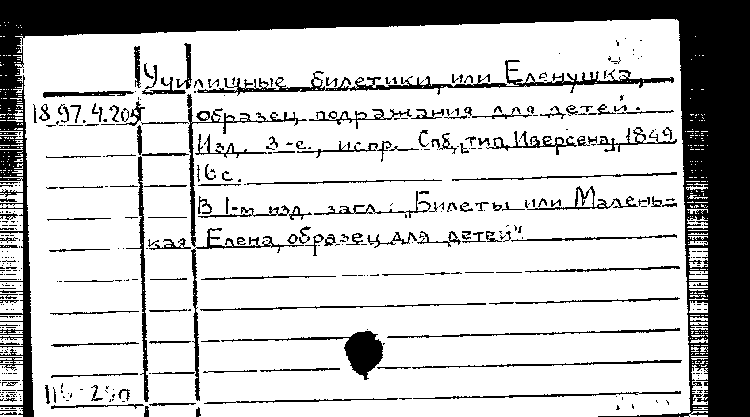 Училищные билетики, или Еленушка,
18.97.4.205 образец подражания для детей.
Изд. 3-е., испр. Спб, тип. Иверсена, 1849
16 с.
В 1-м изд. загл.: „Билеты или Малень-
кая Елена, образец для детей".